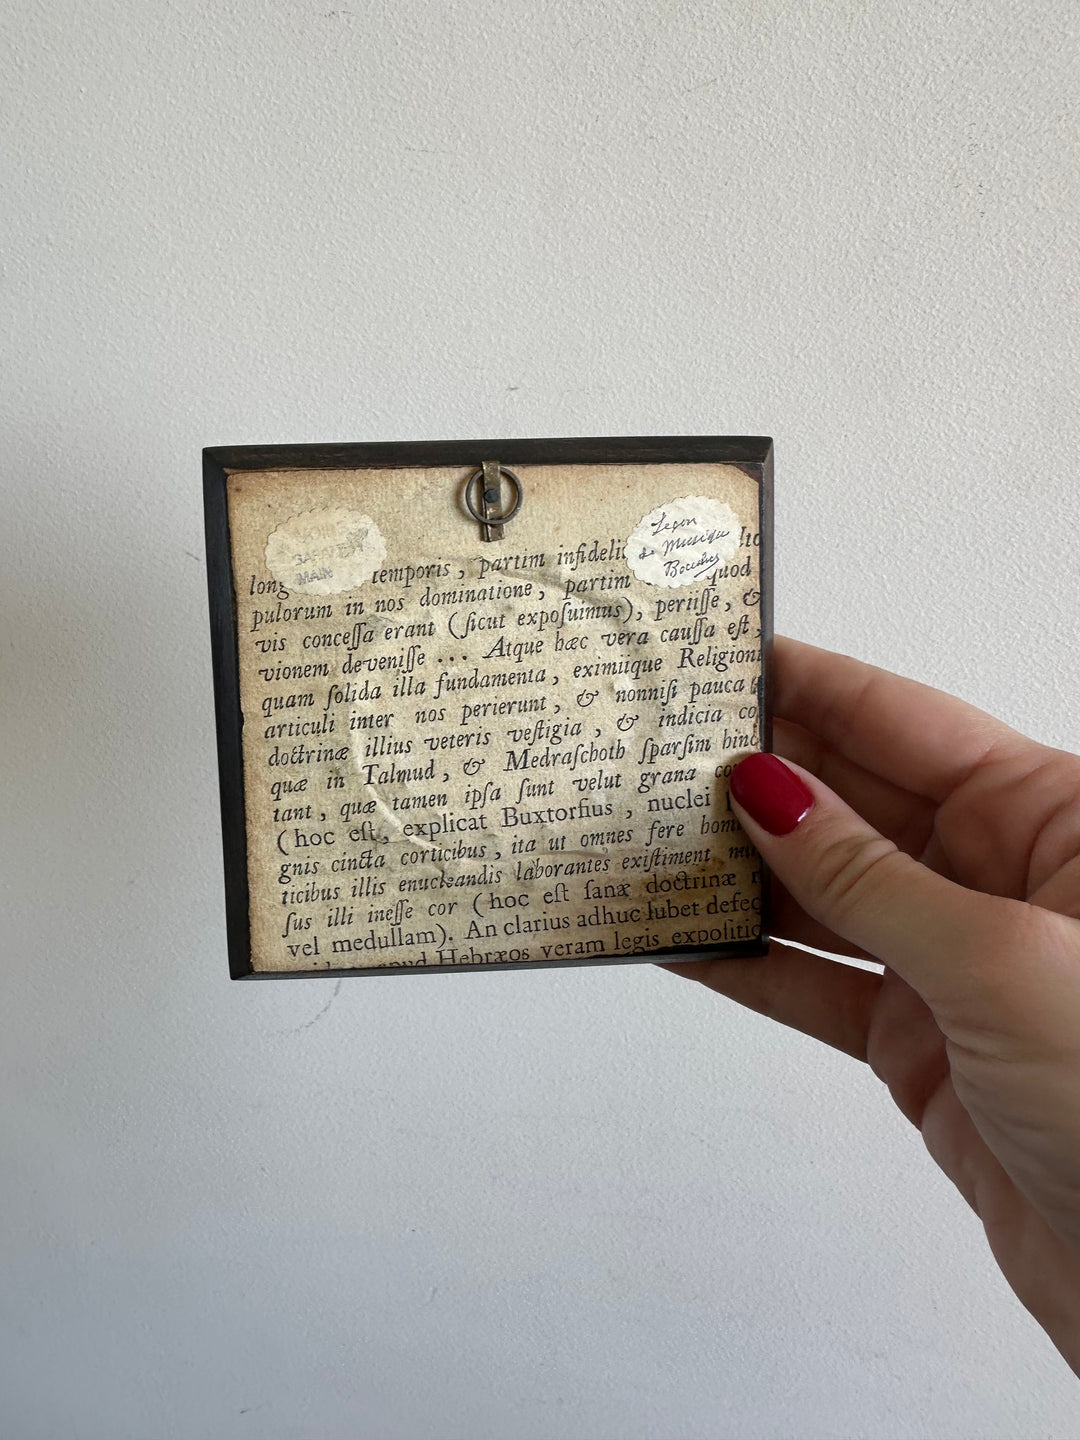 MAIN
Leçon
de Musique
long temporis, partim infideli
pulorum in nos dominatione, partim quod
vis conceſſa erant (ſicut expoſuimus), periiſſe, &
vionem deveniſſe ... Atque hæc vera cauſſa eſt,
quam ſolida illa fundamenta, eximiique Religioni
articuli inter nos perierunt, & nonniſi pauca
doctrinæ illius veteris veſtigia, & indicia co
quæ in Talmud, & Medraſchoth ſparſim hinc
tant, quæ tamen ipſa ſunt velut grana
(hoc eſt, explicat Buxtorfius, nuclei
gnis cincta corticibus, ita ut omnes fere hom
ticibus illis enucleandis laborantes exiſtiment
ſus illi ineſſe cor (hoc eſt ſanæ doctrinæ
vel medullam). An clarius adhuc lubet defec
apud Hebræos veram legis expoſitio